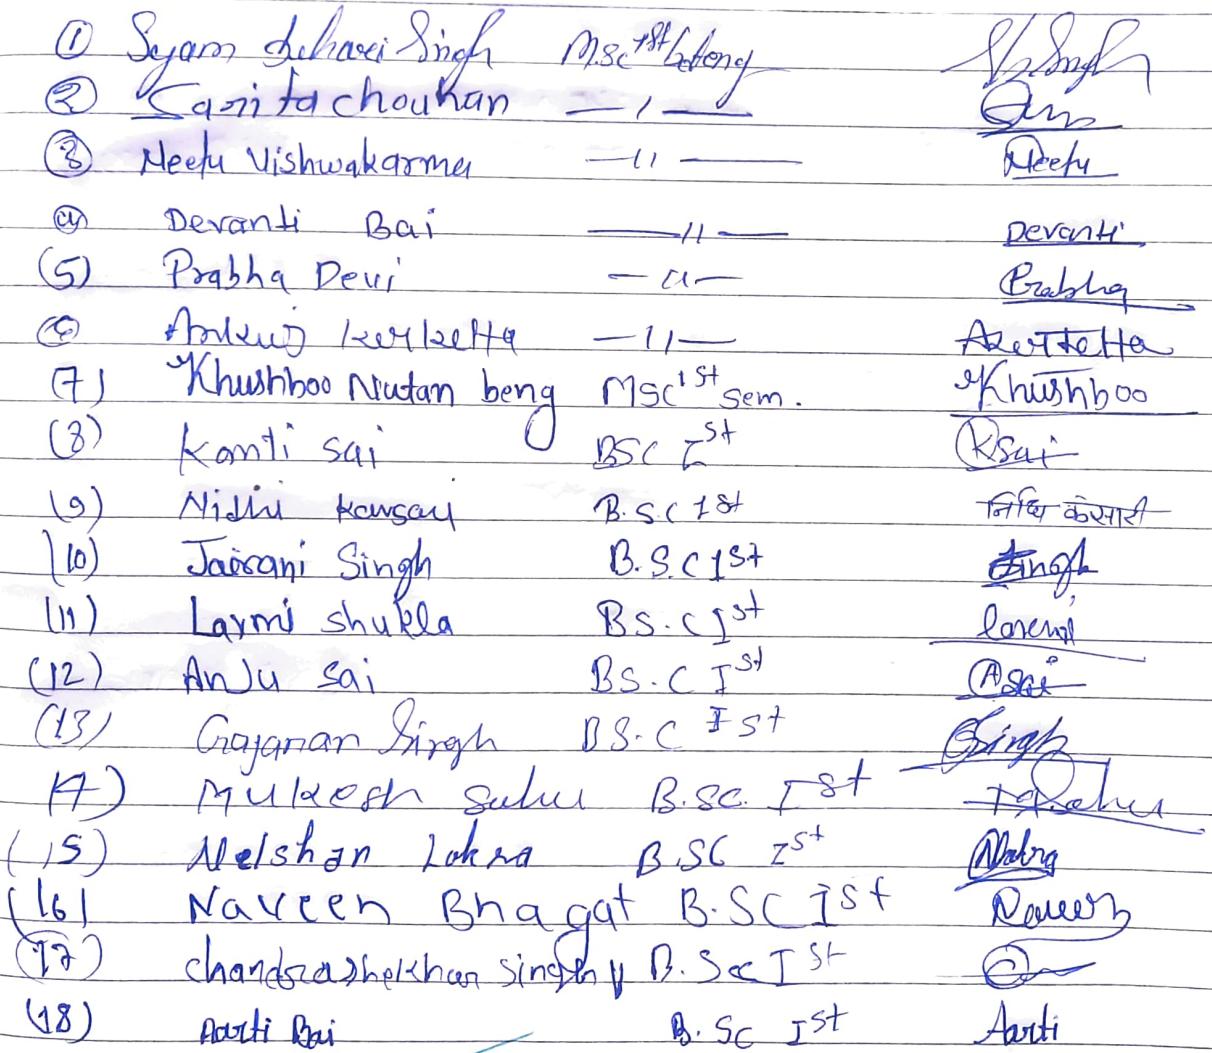 ① Syam Singh Msc 1st
② Sarita chouhan —〃—
③ Neetu Vishwakarma —〃— Neetu
④ Devanti Bai —〃— Devanti
(5) Prabha Devi —〃— Prabha
⑥ kerketta —〃— Akerketta
(7) Khushboo Nutan beng MSC 1st Sem. Khushboo
(8) Kanti sai BSC Ist Ksai
(9) Nidhi B.S.C 1st निधि केसारी
(10) Jairani Singh B.S.C 1st Singh
(11) Laxmi Shukla BS.C Ist
(12) AnJu sai BS.C Ist Asai
(13) Gajanan Singh BS.C Ist GSingh
14) Mukesh Sahu B.SC. Ist
(15) Nelshan Lakra B.SC Ist
(16) Naveen Bhagat B.SC Ist Naveen
(17) Chandrashekhar Singh B.Sc Ist
(18) Aarti Bai B.Sc Ist Aarti